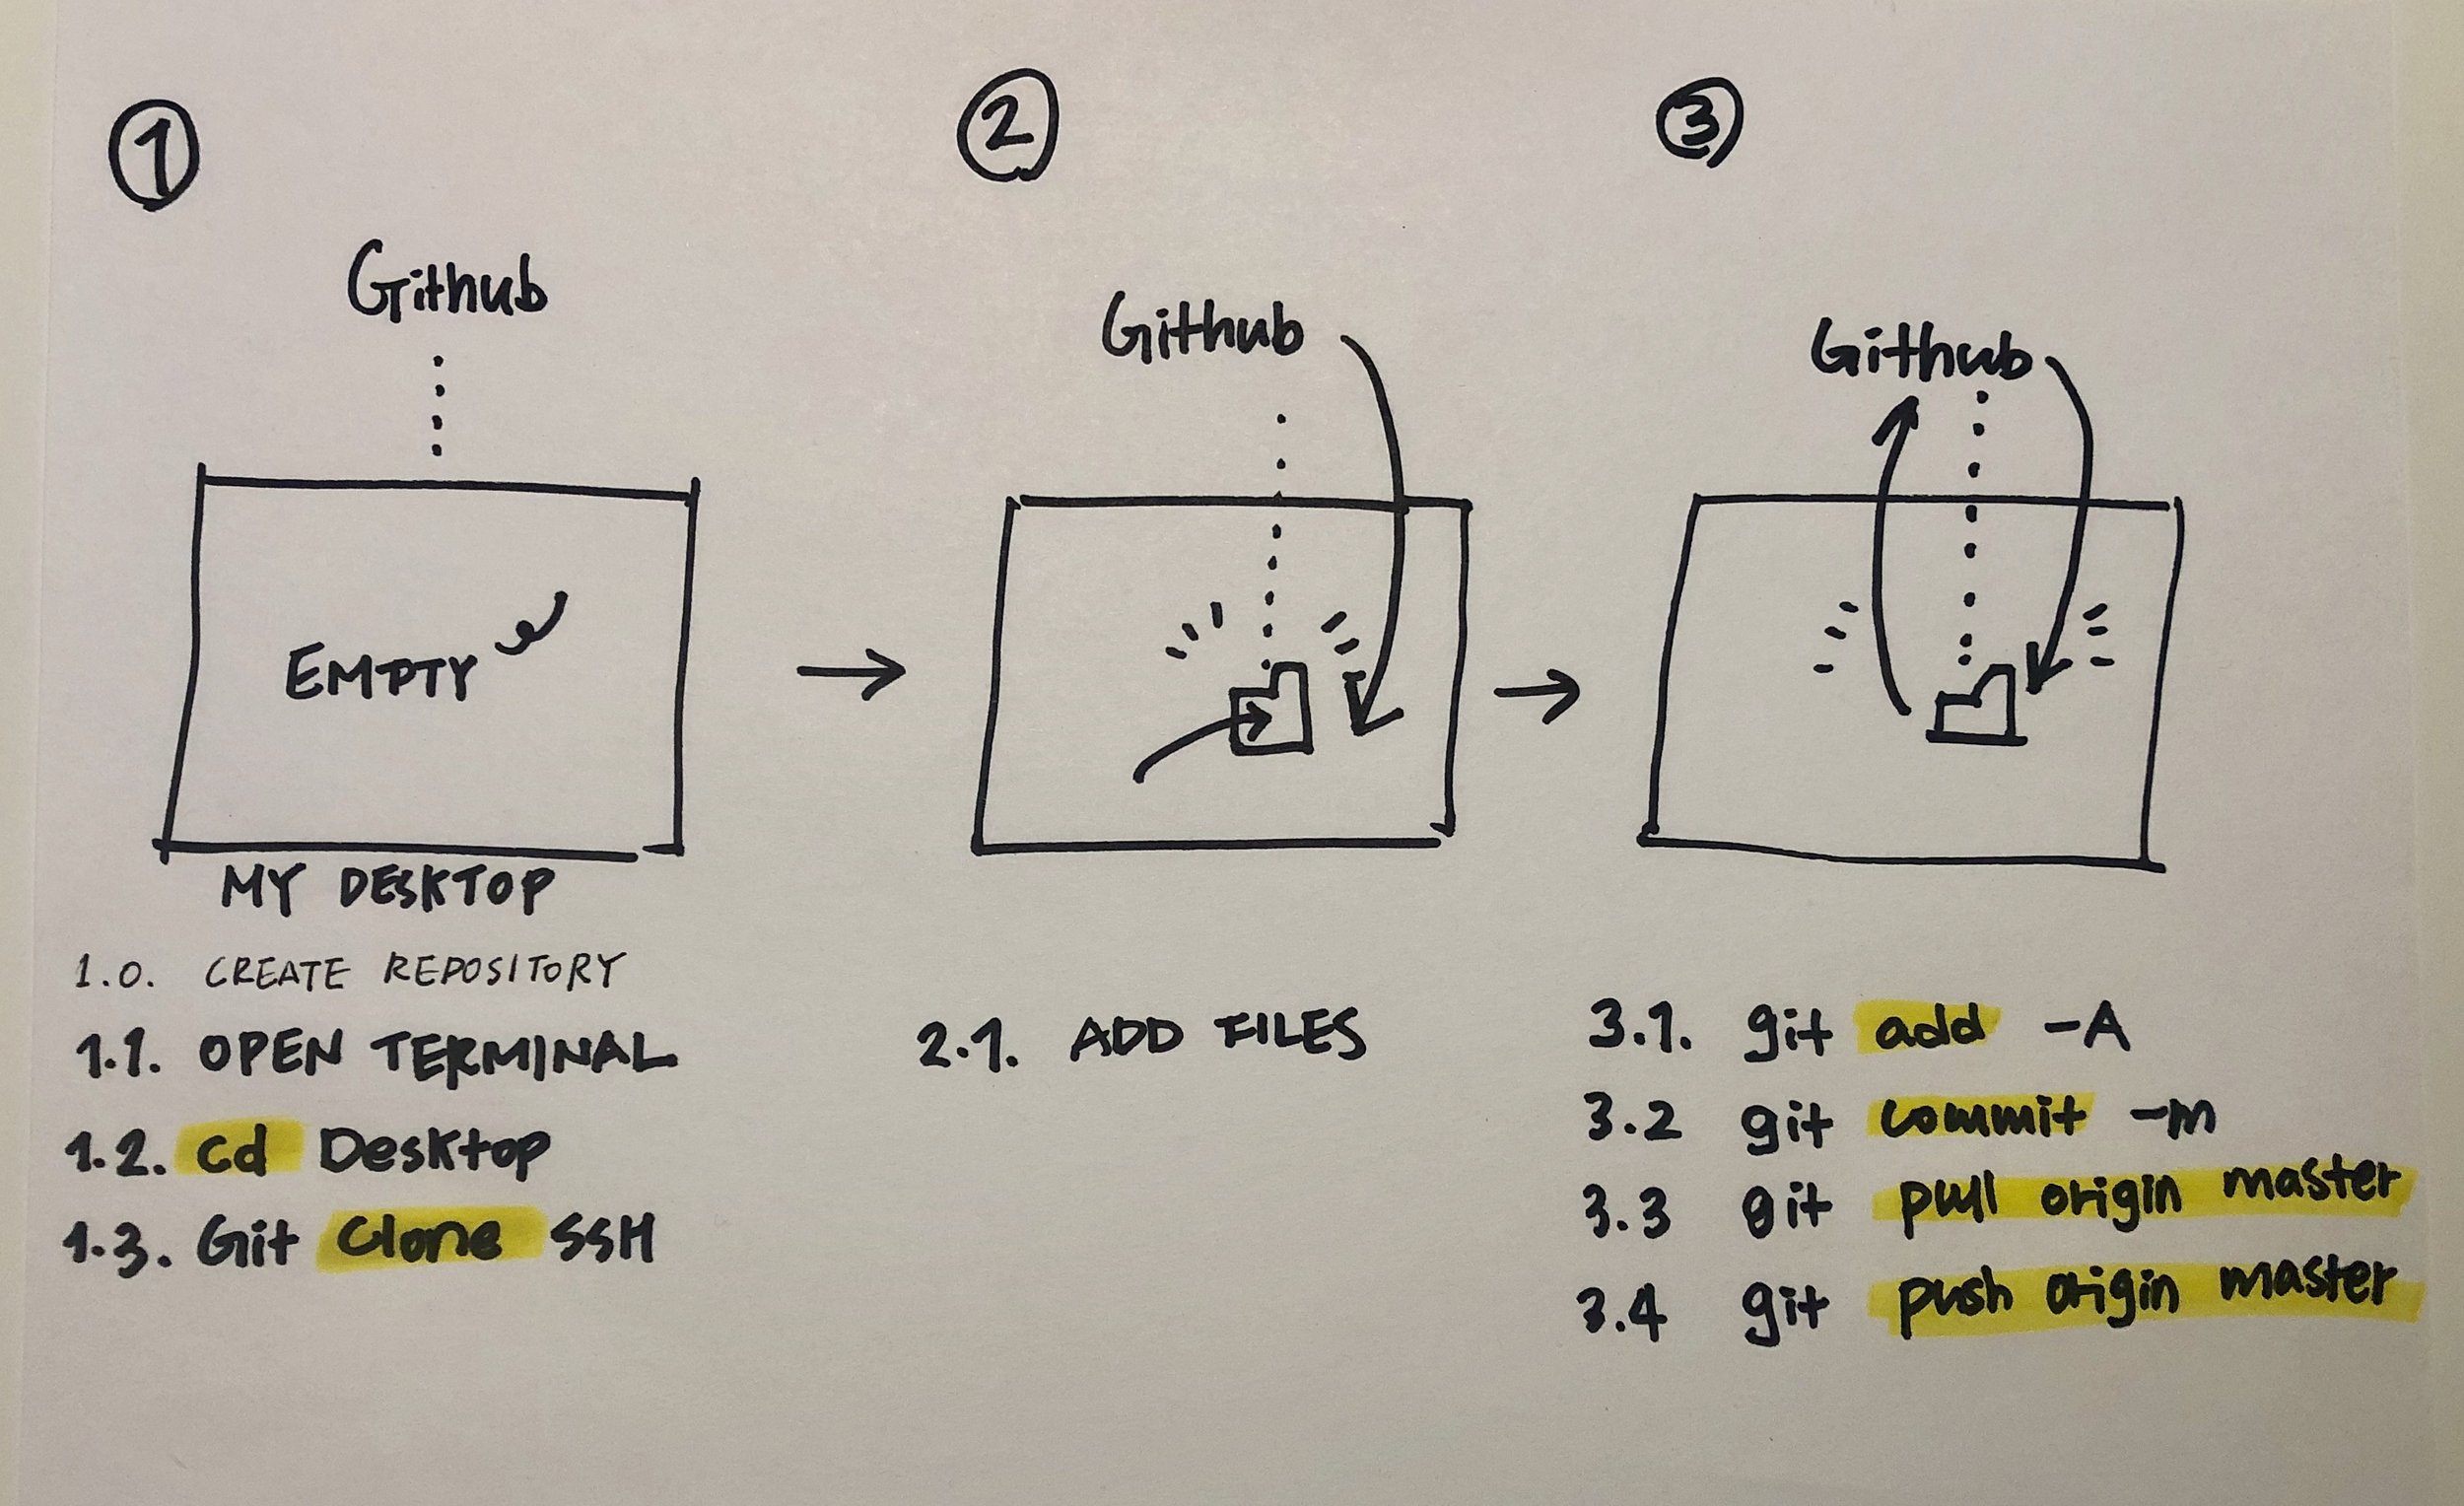 1
Github
EMPTY
MY DESKTOP
1.0. CREATE REPOSITORY
1.1. OPEN TERMINAL
1.2. cd Desktop
1.3. Git Clone SSH
2
Github
2.1. ADD FILES
3
Github
3.1. git add -A
3.2 git commit -m
3.3 git pull origin master
3.4 git push origin master